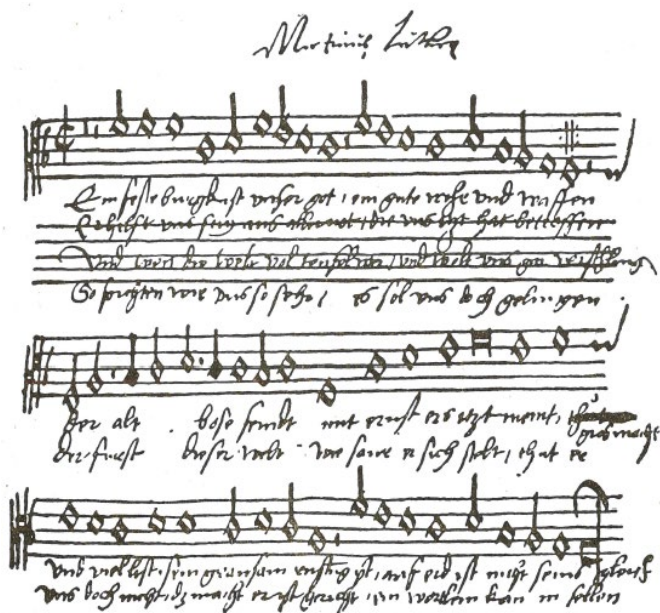 Martinus Luther
Ein feste burg ist unser got, ein gute wehr und waffen
Er hilfft uns frey aus aller not, die uns itzt hat betroffen
Und wen die welt vol teuffel wer, und wolt uns gar verschling
So furchten wir uns so sehr, es sol uns doch gelingen.
der alt bose feindt mit ernst ers itzt meint,
gros macht
der furst dieser welt wie saur er sich stelt, thut er
und viel list, sein grausam rustug yst, auf erd ist nicht seins gleich
uns doch nicht, dz macht er ist gericht, ein wortlein kan in fellen